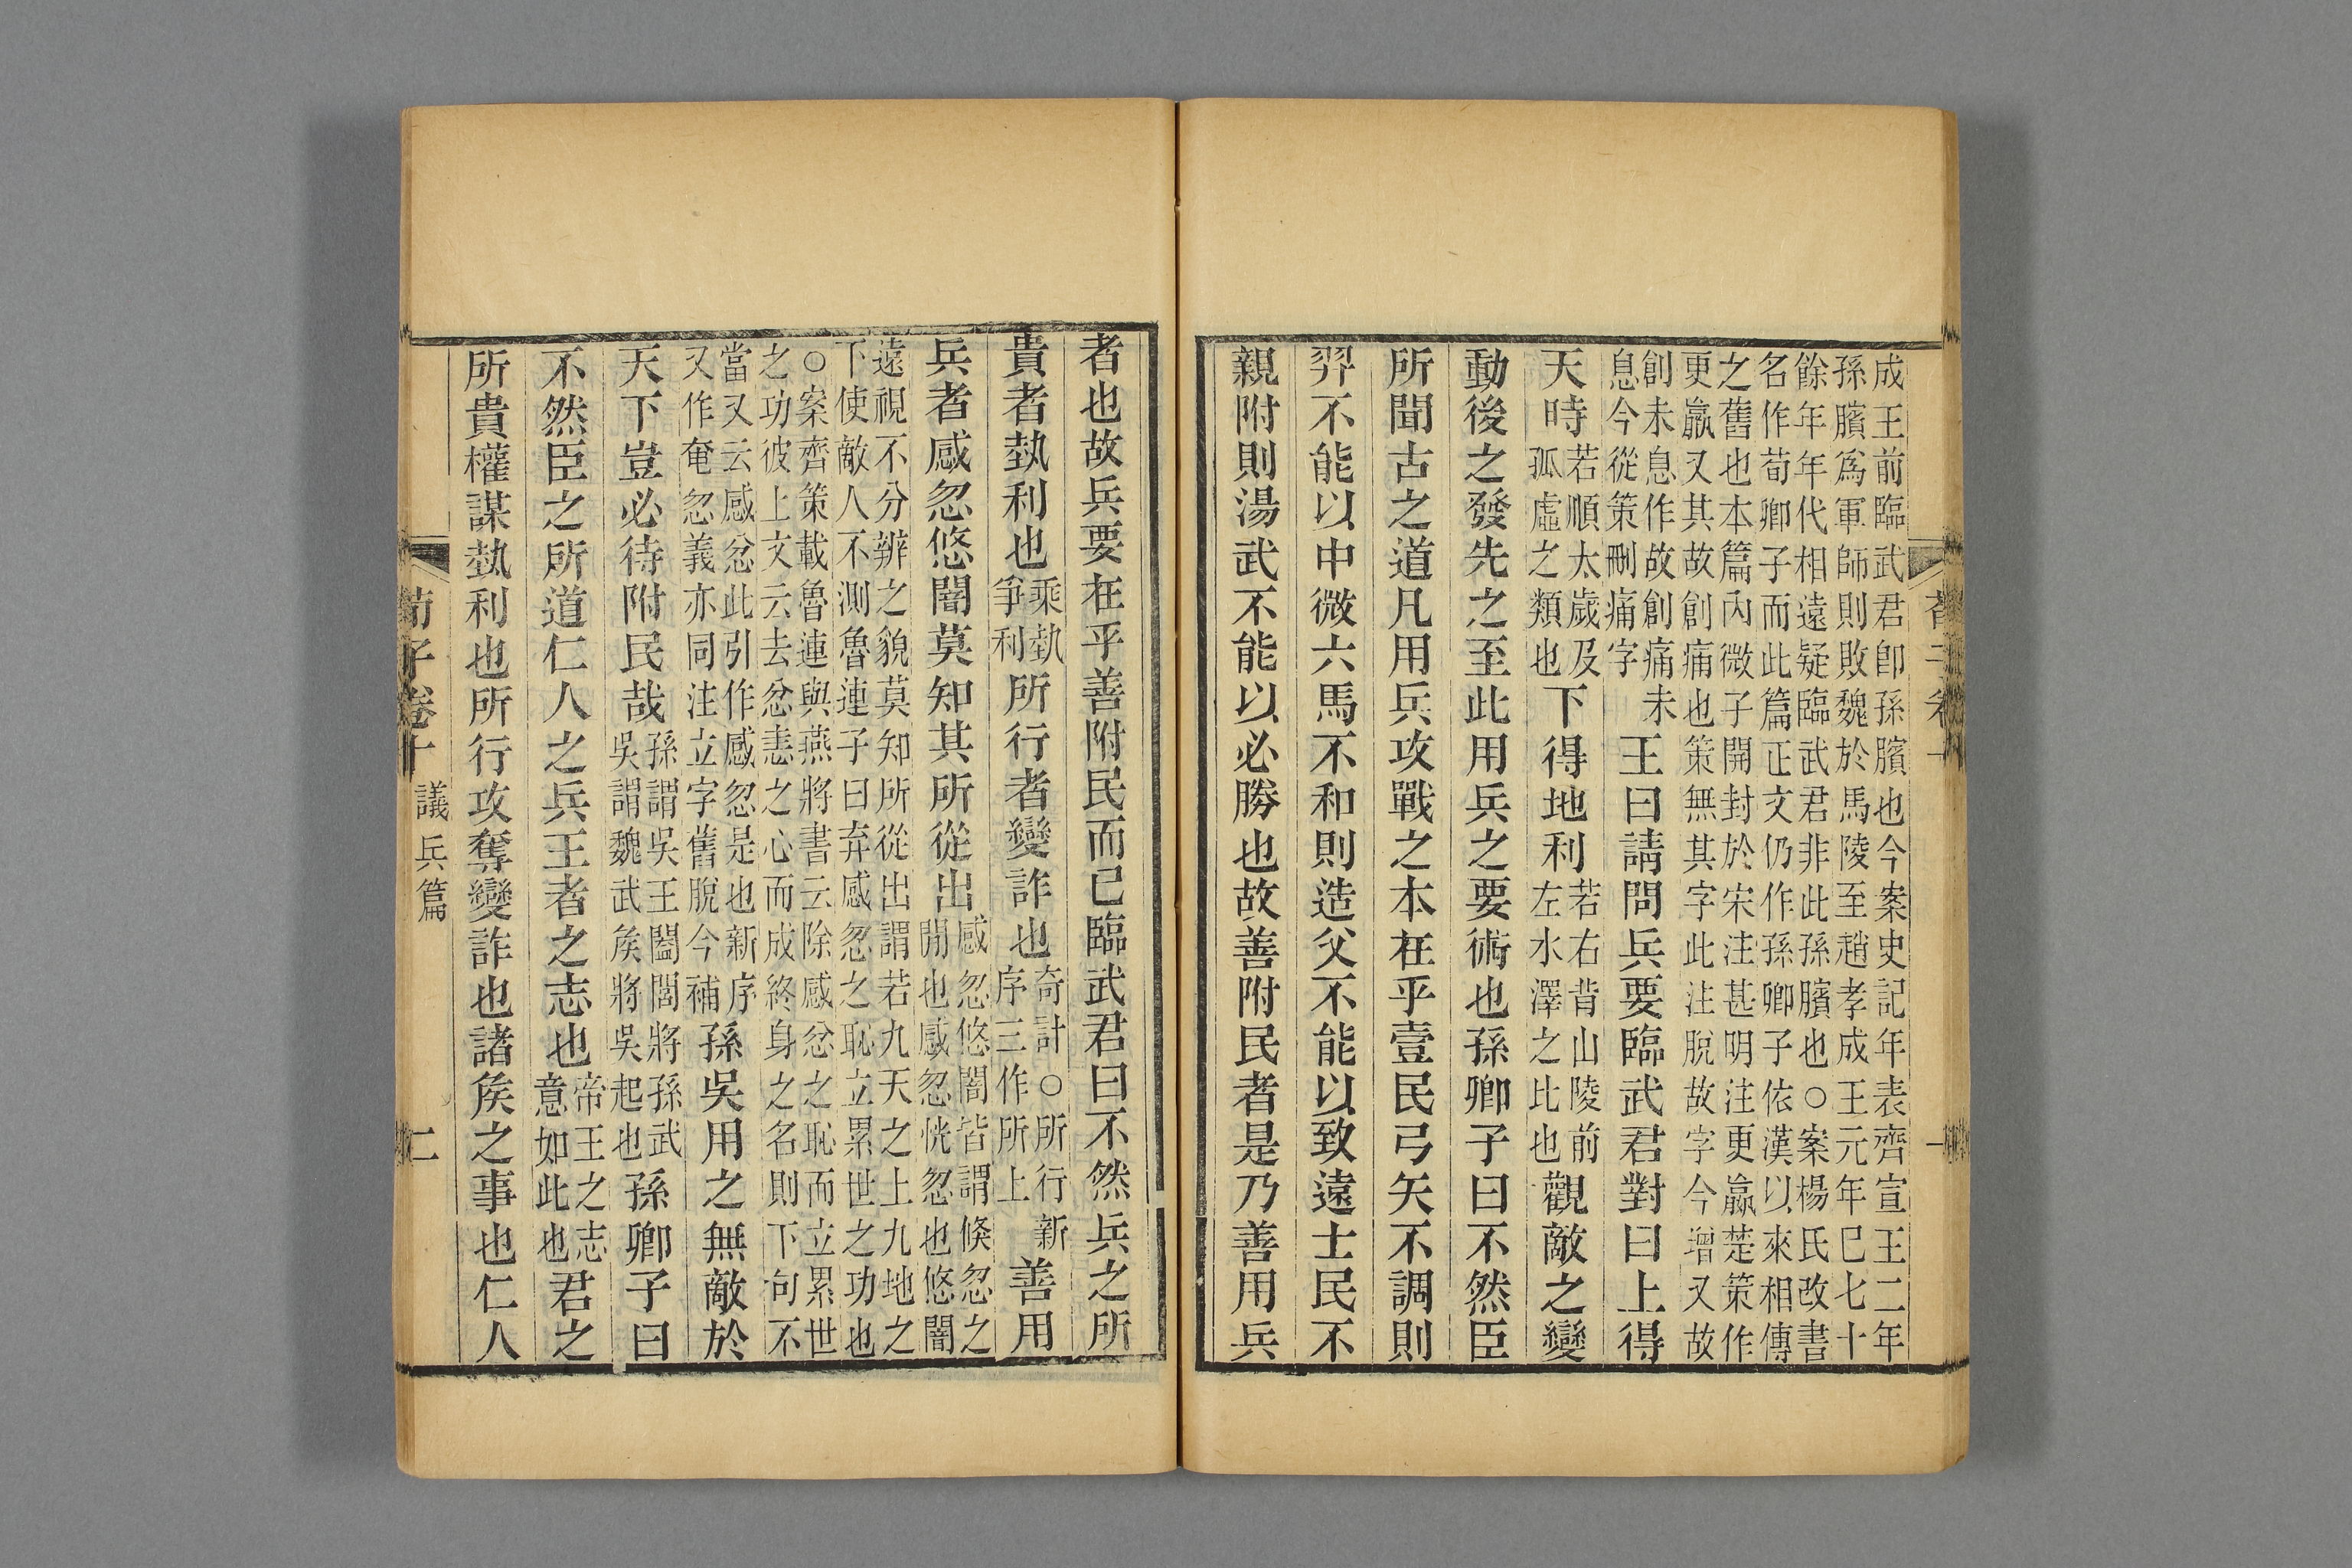 成王前臨武君卽孫臏也今案史記年表齊宣王二年
孫臏爲軍師則敗魏於馬陵至趙孝成王元年巳七十
餘年年代相遠疑臨武君非此孫臏也○案楊氏改書
名作荀卿子而此篇正文仍作孫卿子依漢以來相傳
之舊也本篇內微子開封於宋注甚明注更羸楚策作
更羸又其故創痛也策無其字此注脫故字今增又故
創未息作故創痛未
息今從策刪痛字
王曰請問兵要臨武君對曰上得
天時
若順太歲及
孤虛之類也
下得地利
若右背山陵前
左水澤之比也
觀敵之變
動後之發先之至此用兵之要術也孫卿子曰不然臣
所聞古之道凡用兵攻戰之本在乎壹民弓矢不調則
羿不能以中微六馬不和則造父不能以致遠士民不
親附則湯武不能以必勝也故善附民者是乃善用兵
者也故兵要在乎善附民而已臨武君曰不然兵之所
貴者埶利也
乘埶
爭利
所行者變詐也
奇計○所行新
序三作所上
善用
兵者感忽悠闇莫知其所從出
感忽悠闇皆謂倏忽之
閒也感忽恍忽也悠闇
遠視不分辨之貌莫知所從出謂若九天之上九地之
下使敵人不測魯連子曰弃感忽之恥立累世之功也
○案齊策載魯連與燕將書云除感忿之恥而立累世
之功彼上文云去忿恚之心而成終身之名則下句不
當又云感忿此引作感忽是也新序
又作奄忽義亦同注立字舊脫今補
孫吳用之無敵於
天下豈必待附民哉
孫謂吳王闔閭將孫武
吳謂魏武矦將吳起也
孫卿子曰
不然臣之所道仁人之兵王者之志也
帝王之志
意如此也
君之
所貴權謀埶利也所行攻奪變詐也諸矦之事也仁人
荀子卷十
議兵篇
二